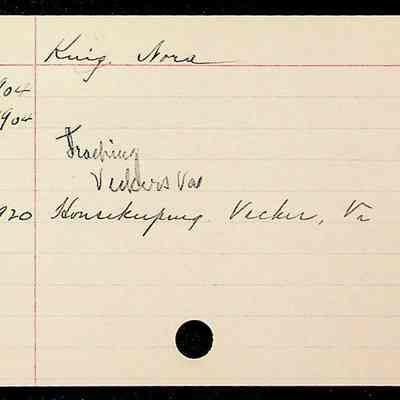 King. Nora
904
904
Teaching
Veckers Va
920 Housekeeping Vecker, Va